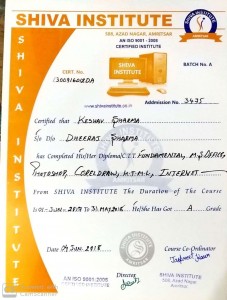 SHIVA INSTITUTE
108, AZAD NAGAR, AMRITSAR
AN ISO 9001 - 2008
CERTIFIED INSTITUTE
CERT. NO.
BATCH No. A
www.shivainstitute.co.in
Addmission No. 3435
Certified that Keshav Sharma
S/o D/o Dheeraj Sharma
has Completed His/Her Diploma C.I.T. Fundamental, M.S. Office,
Photoshop, CorelDraw, H.T.M.L, Internet
From SHIVA INSTITUTE The Duration of the Course
is 01-June-2017 to 31 May 2018 He/She Has Got A Grade
Date 04 June 2018
Course Co-Ordinator
Director
SHIVA INSTITUTE